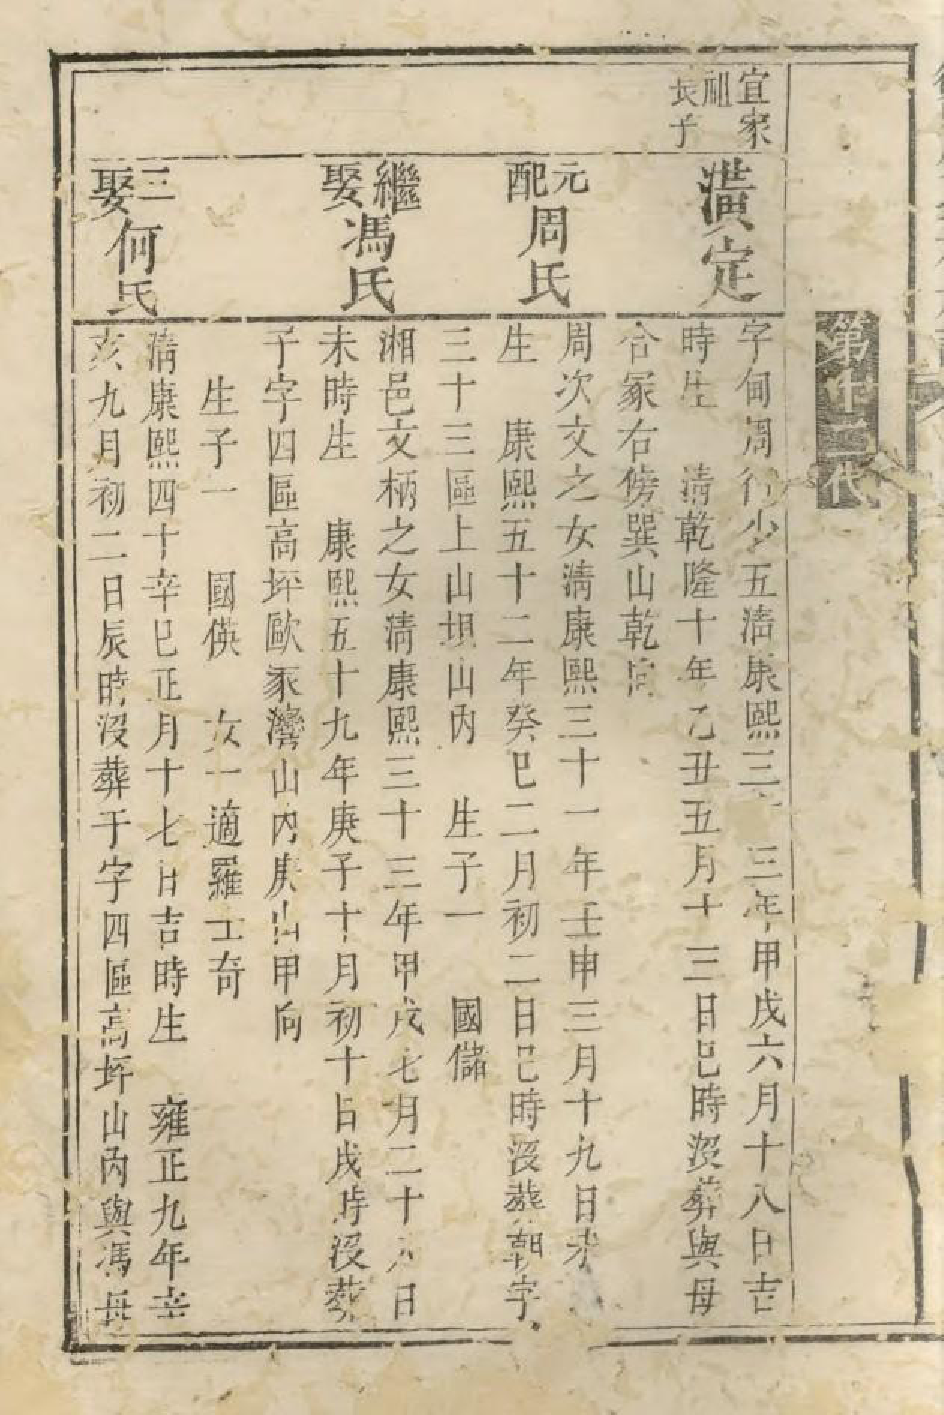 第十二代
宜家
祖
長子
潢定
字甸周行少五清康熙三十三年甲戌六月十八日吉
時生　清乾隆十年乙丑五月十三日巳時沒葬與母
合冢右傍巽山乾向
元配周氏
周次文之女清康熙三十一年壬申三月十九日未
生　康熙五十二年癸巳二月初二日巳時沒葬朝字
三十三區上山坦山內　生子一　國儲
繼娶馮氏
湘邑文柄之女清康熙三十三年甲戌七月二十六日
未時生　康熙五十九年庚子十月初十日戌時沒葬
子字四區高坪歐家灣山內庚山甲向
生子一　國偀　女一適羅士奇
三娶何氏
清康熙四十辛巳正月十七日吉時生　雍正九年辛
亥九月初二日辰時沒葬于字四區高坪山內與馮母